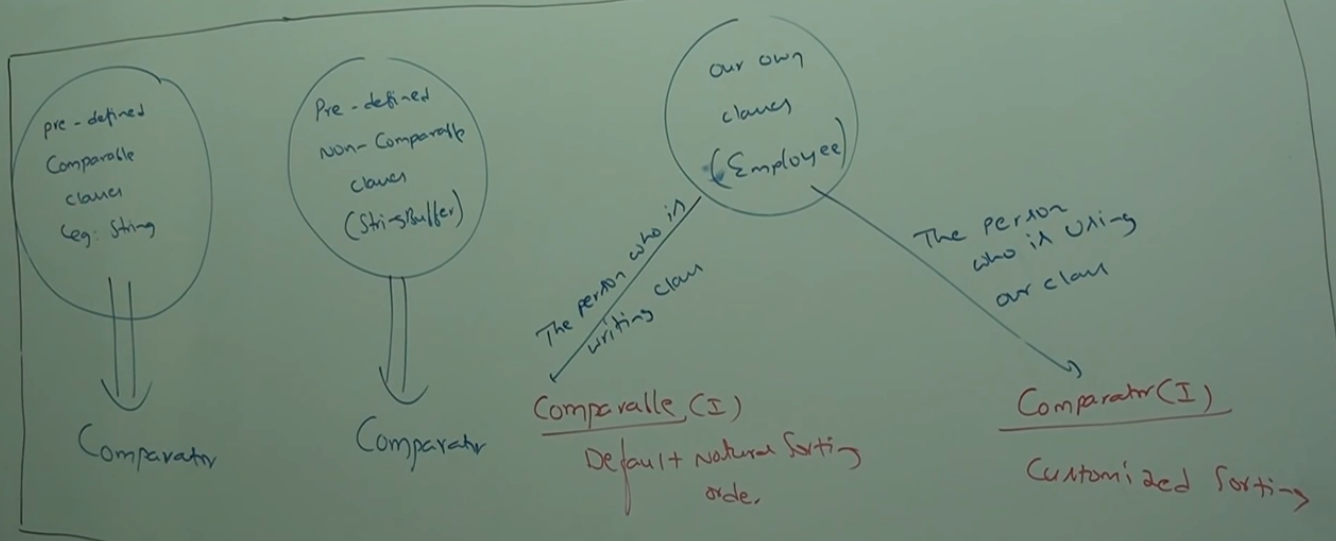 pre-defined
Comparable
classes
(eg: String
Comparator
Pre-defined
Non-Comparable
classes
(StringBuffer)
Comparator
our own
classes
(Employee)
The person who is
writing class
Comparable (I)
Default Natural Sorting
order.
The person
who is using
our class
Comparator (I)
Customized Sorting